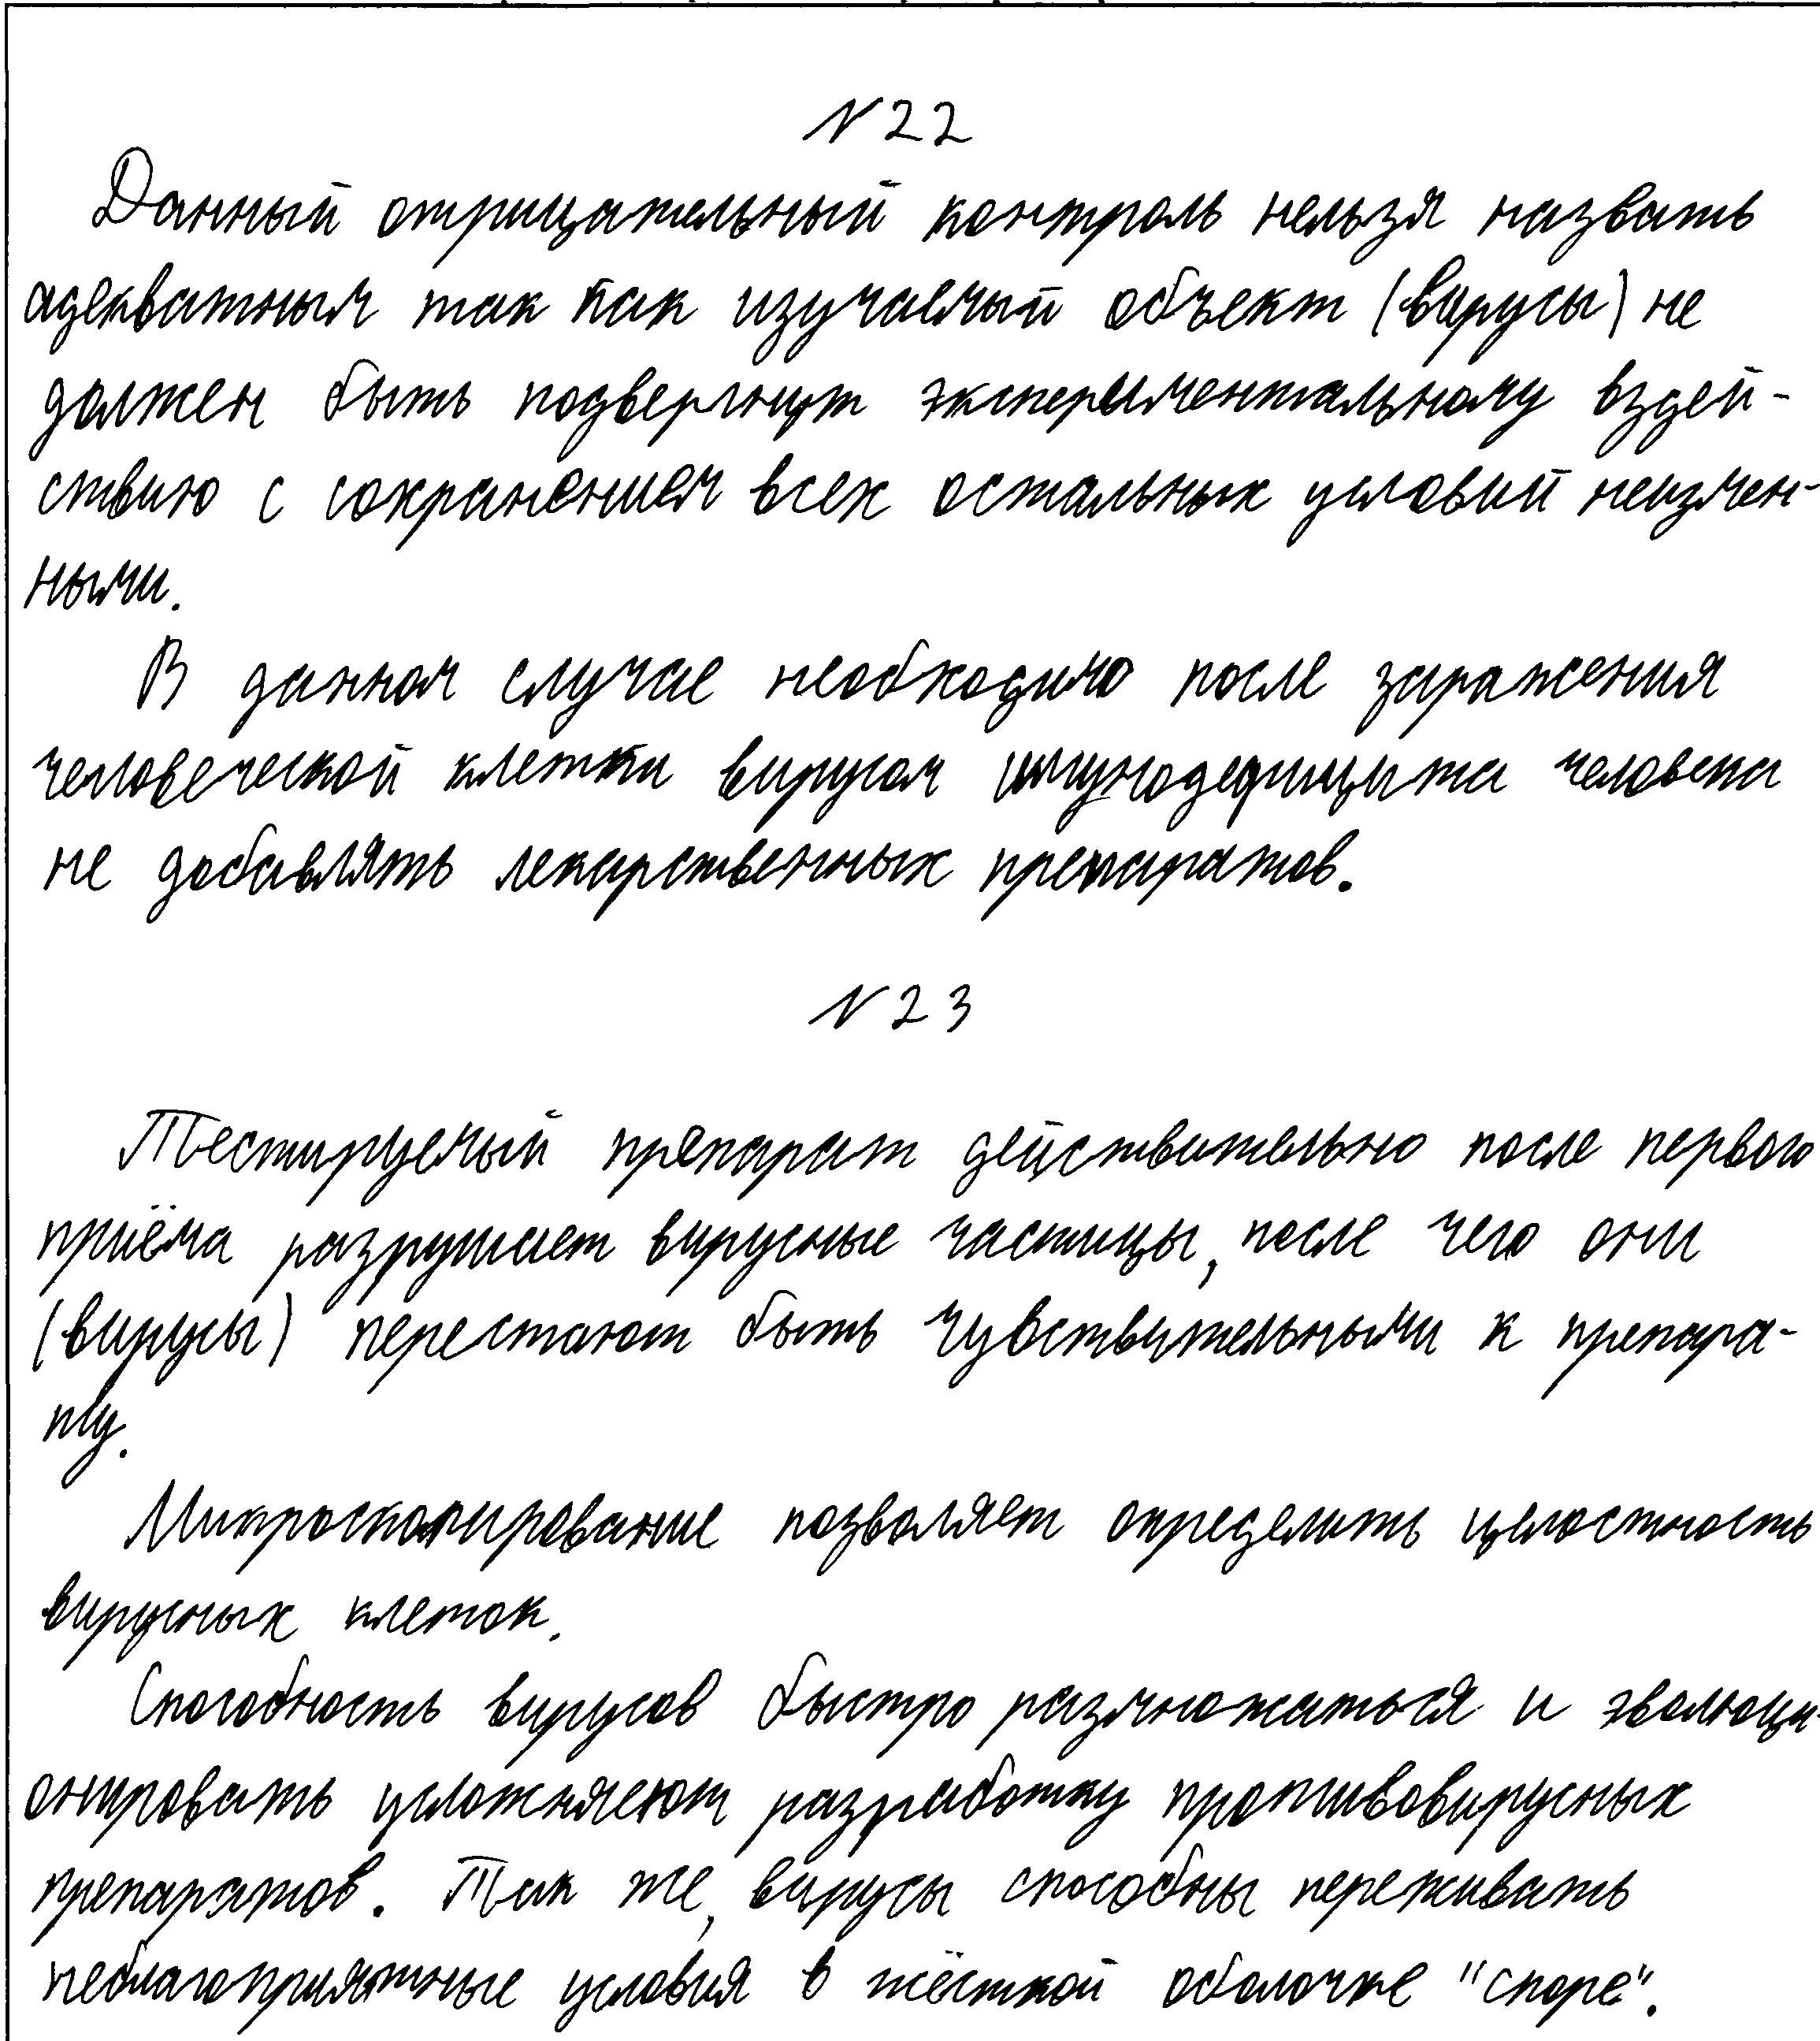 №22
Данный отрицательный контроль нельзя назвать
адекватным так как изучаемый объект (вирусы) не
должен быть подвергнут экспериментальному вздей-
ствию с сохранением всех остальных условий неизмен-
ными.
В данном случае необходимо после заражения
человеческой клетки вирусом имунодефицита человека
не добавлять лекарственных препаратов.
№23
Тестируемый препарат действительно после первого
приёма разрушает вирусные частицы, после чего они
(вирусы) перестают быть чувствительными к препара-
ту.
Микроскопирование позволяет определить целостность
вирусных клеток.
Способность вирусов быстро размножаться и эволюци-
онировать усложняеют разработку противовирусных
препаратов. Так же, вирусы способны переживать
неблагоприятные условия в жёсткой оболочке "споре".